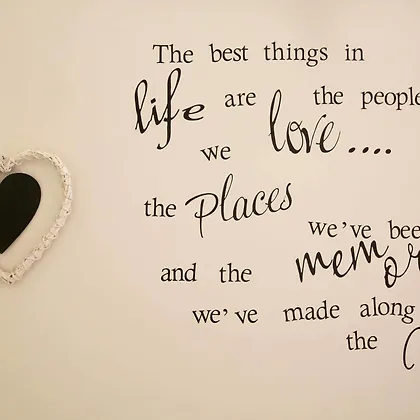 The best things in
life are the people
we love....
the places
we've bee
and the memor
we've made along
the